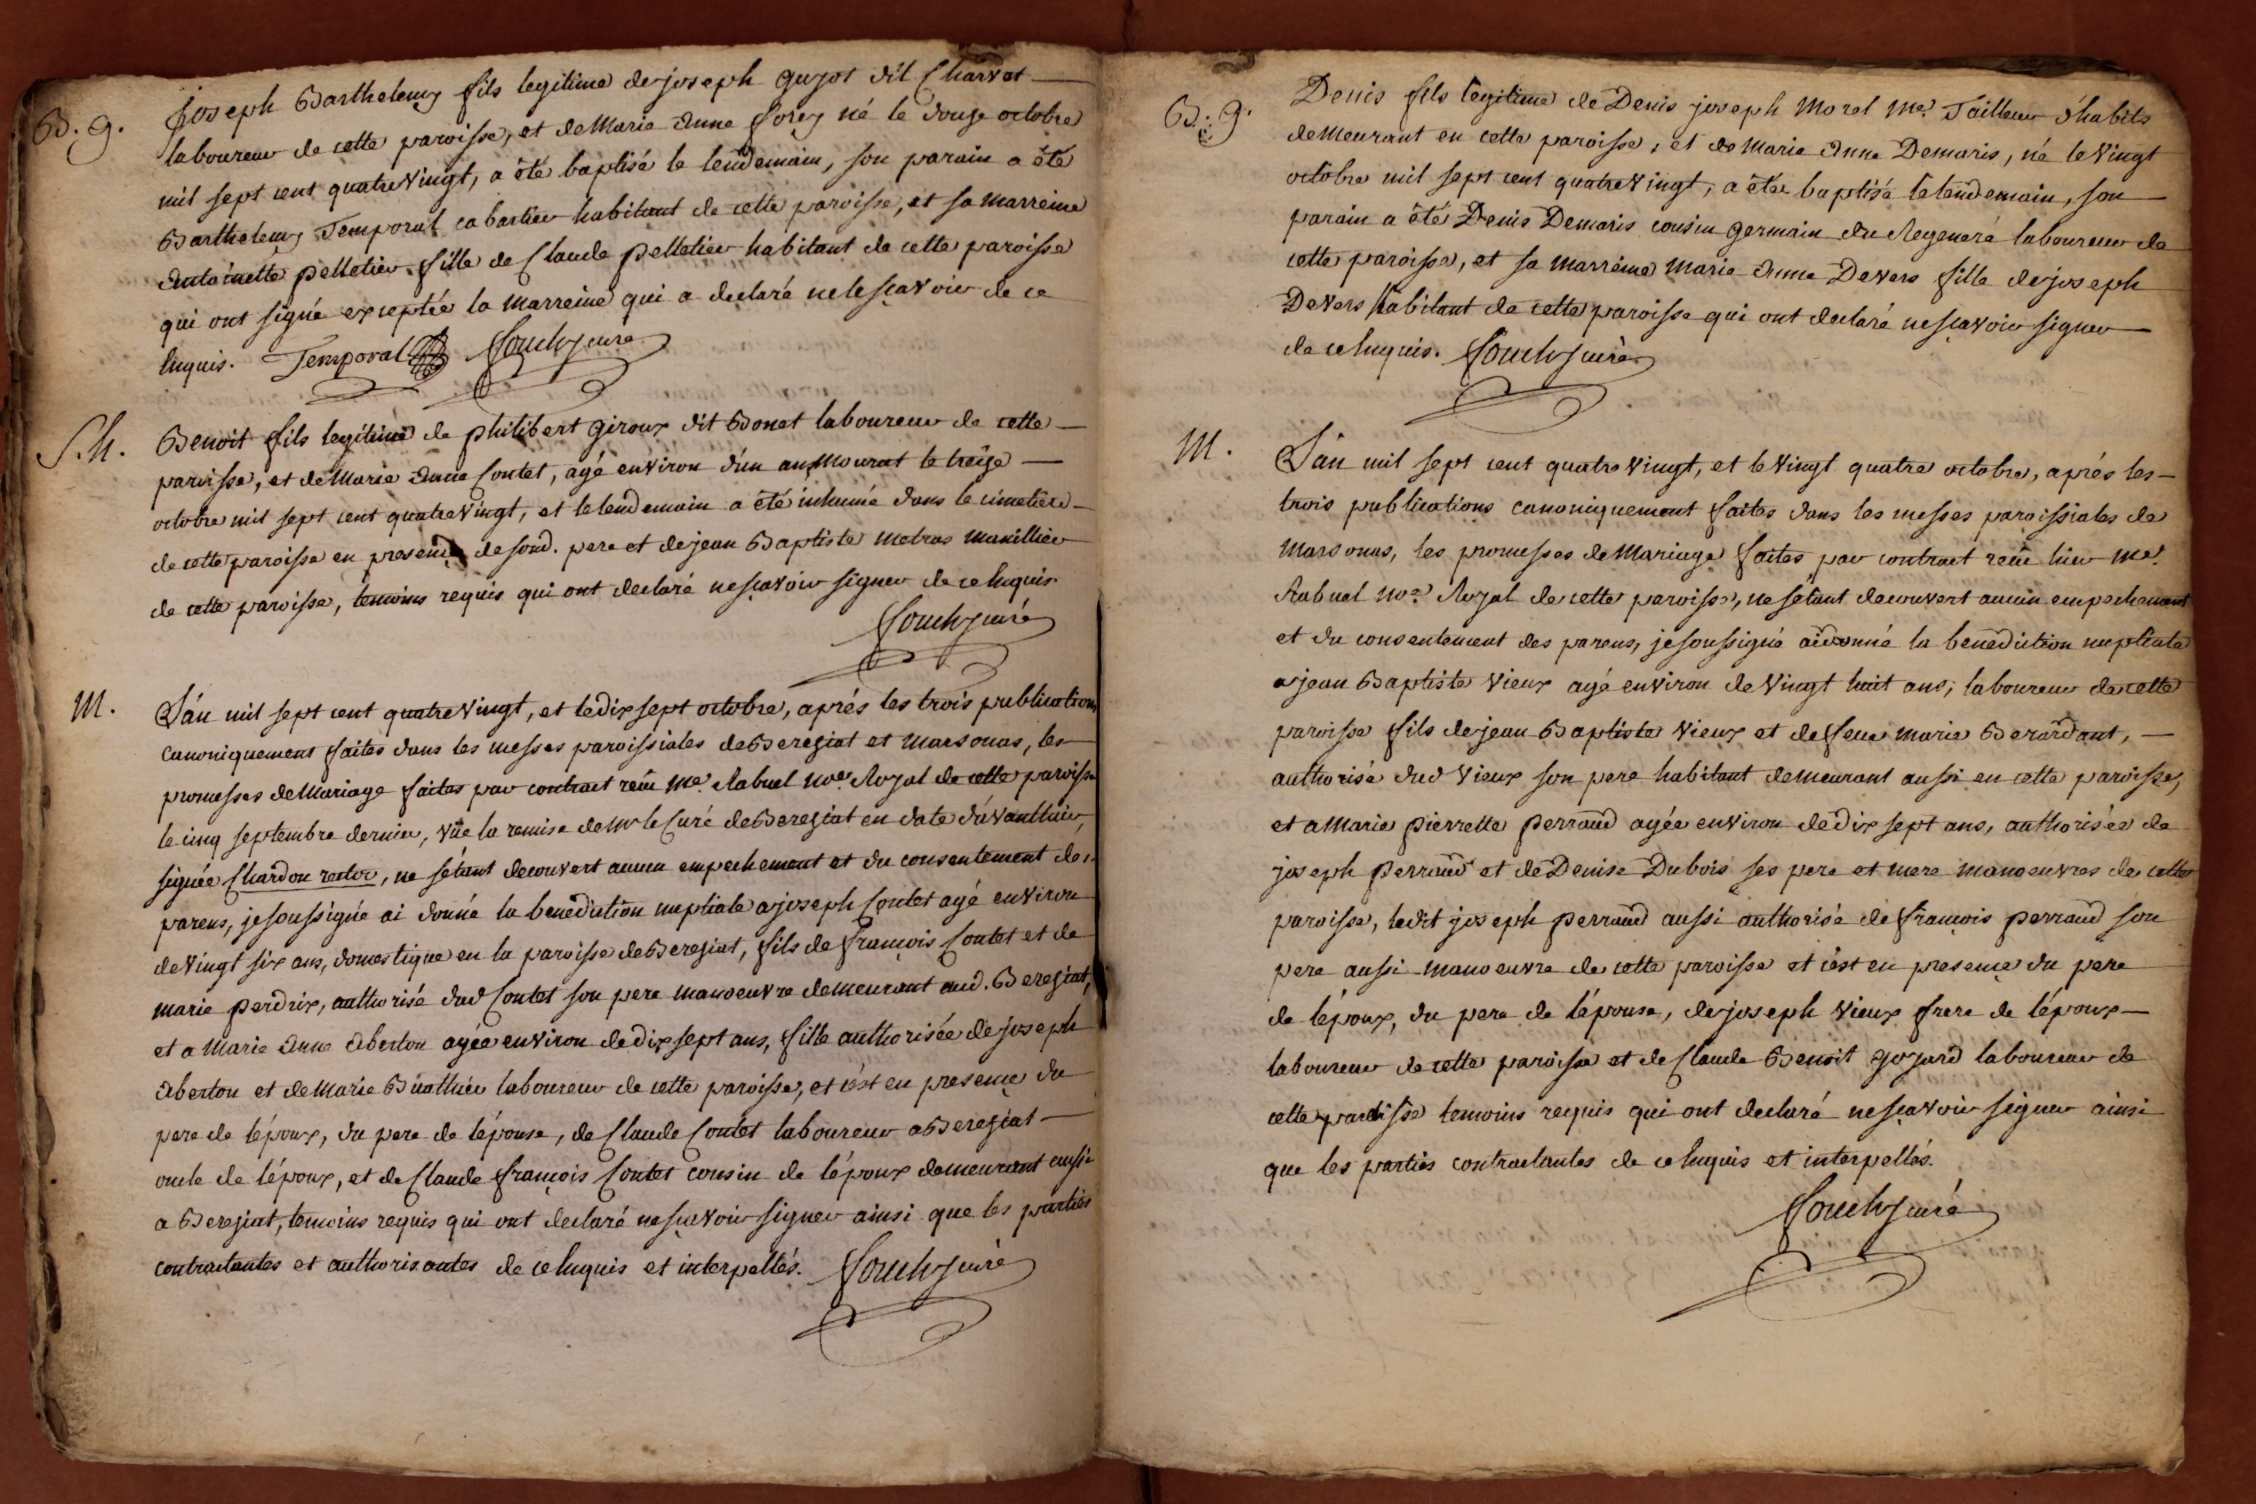 B. g.
Joseph Barthelemy fils legitime de joseph guyot dit Charvet
laboureur de cette paroisse, et de Marie Anne Forey né le douze octobre
mil sept cent quatre vingt, a été baptisé le lendemain, son parain a été
Barthelemy Temporal cabartier habitant de cette paroisse, et sa marreine
Antoinette pelletier fille de Claude pelletier habitant de cette paroisse
qui ont signé exceptée la marreine qui a declaré ne le sçavoir de ce
enquis. Temporal Couchy curé
S. h.
Benoit fils legitime de philibert giroux dit Bonet laboureur de cette
paroisse, et de Marie Anne Contet, agé environ d'un an, Mourut le treize
octobre mil sept cent quatre vingt, et le lendemain a été inhumé dans le cimetiere
de cette paroisse en presence de sond. pere et de jean Baptiste metras manillier
de cette paroisse, temoins requis qui ont declaré ne sçavoir signer de ce enquis
Couchy curé
M.
L'an mil sept cent quatre vingt, et le dix sept octobre, aprés les trois publications
canoniquement faites dans les messes paroissiales de Bereziat et marsonas, les
promesses de mariage faites par contract reçu me. Rabuel noe. Royal de cette paroisse
le cinq septembre dernier, vûe la remise de mr le Curé de Bereziat en date d'avanthier,
signée Chardon rector, ne s'étant decouvert aucun empechement et du consentement des
parens, je soussigné ai donné la benediction nuptiale a joseph Contet agé environ
de vingt six ans, domestique en la paroisse de Bereziat, fils de François Contet et de
marie perdrix, authorisé dud Contet son pere manoeuvre demeurant aud. Bereziat,
et a Marie Anne Aberton agée environ de dix sept ans, fille authorisée de joseph
Aberton et de Marie Buathier laboureur de cette paroisse, et c'est en presence du
pere de l'époux, du pere de l'épouse, de Claude Contet laboureur a Bereziat
oncle de l'époux, et de Claude françois Contet cousin de l'époux demeurant aussi
a Bereziat, temoins requis qui ont declaré ne sçavoir signer ainsi que les parties
contractantes et authorisantes de ce enquis et interpellés. Couchy curé
B. g.
Denis fils legitime de Denis joseph Morel me. Tailleur d'habits
demeurant en cette paroisse, et de Marie Anne Demaris, né le vingt
octobre mil sept cent quatre vingt, a été baptisé le lendemain, son
parain a été Denis Demaris cousin germain du Regeneré laboureur de
cette paroisse, et sa marreine Marie Anne Devers fille de joseph
Devers habitant de cette paroisse qui ont declaré ne sçavoir signer
de ce enquis. Couchy curé
M.
L'an mil sept cent quatre vingt, et le vingt quatre octobre, aprés les
trois publications canoniquement faites dans les messes paroissiales de
Marsonas, les promesses de Mariage faites par contract reçu hier me.
Rabuel noe. Royal de cette paroisse, ne s'étant decouvert aucun empechement
et du consentement des parens, je soussigné ai donné la benediction nuptiale
a jean Baptiste vieux agé environ de vingt huit ans, laboureur de cette
paroisse fils de jean Baptiste vieux et de feue marie Berardant,
authorisé dud vieux son pere habitant demeurant aussi en cette paroisse,
et a Marie pierrette perraud agée environ de dix sept ans, authorisée de
joseph perraud et de Denise Dubois ses pere et mere manoeuvres de cette
paroisse, ledit joseph perraud aussi authorisé de françois perraud son
pere aussi manoeuvre de cette paroisse et c'est en presence du pere
de l'époux, du pere de l'épouse, de joseph vieux frere de l'époux
laboureur de cette paroisse et de Claude Benoit goyard laboureur de
cette paroisse temoins requis qui ont declaré ne sçavoir signer ainsi
que les parties contractantes de ce enquis et interpellés.
Couchy curé